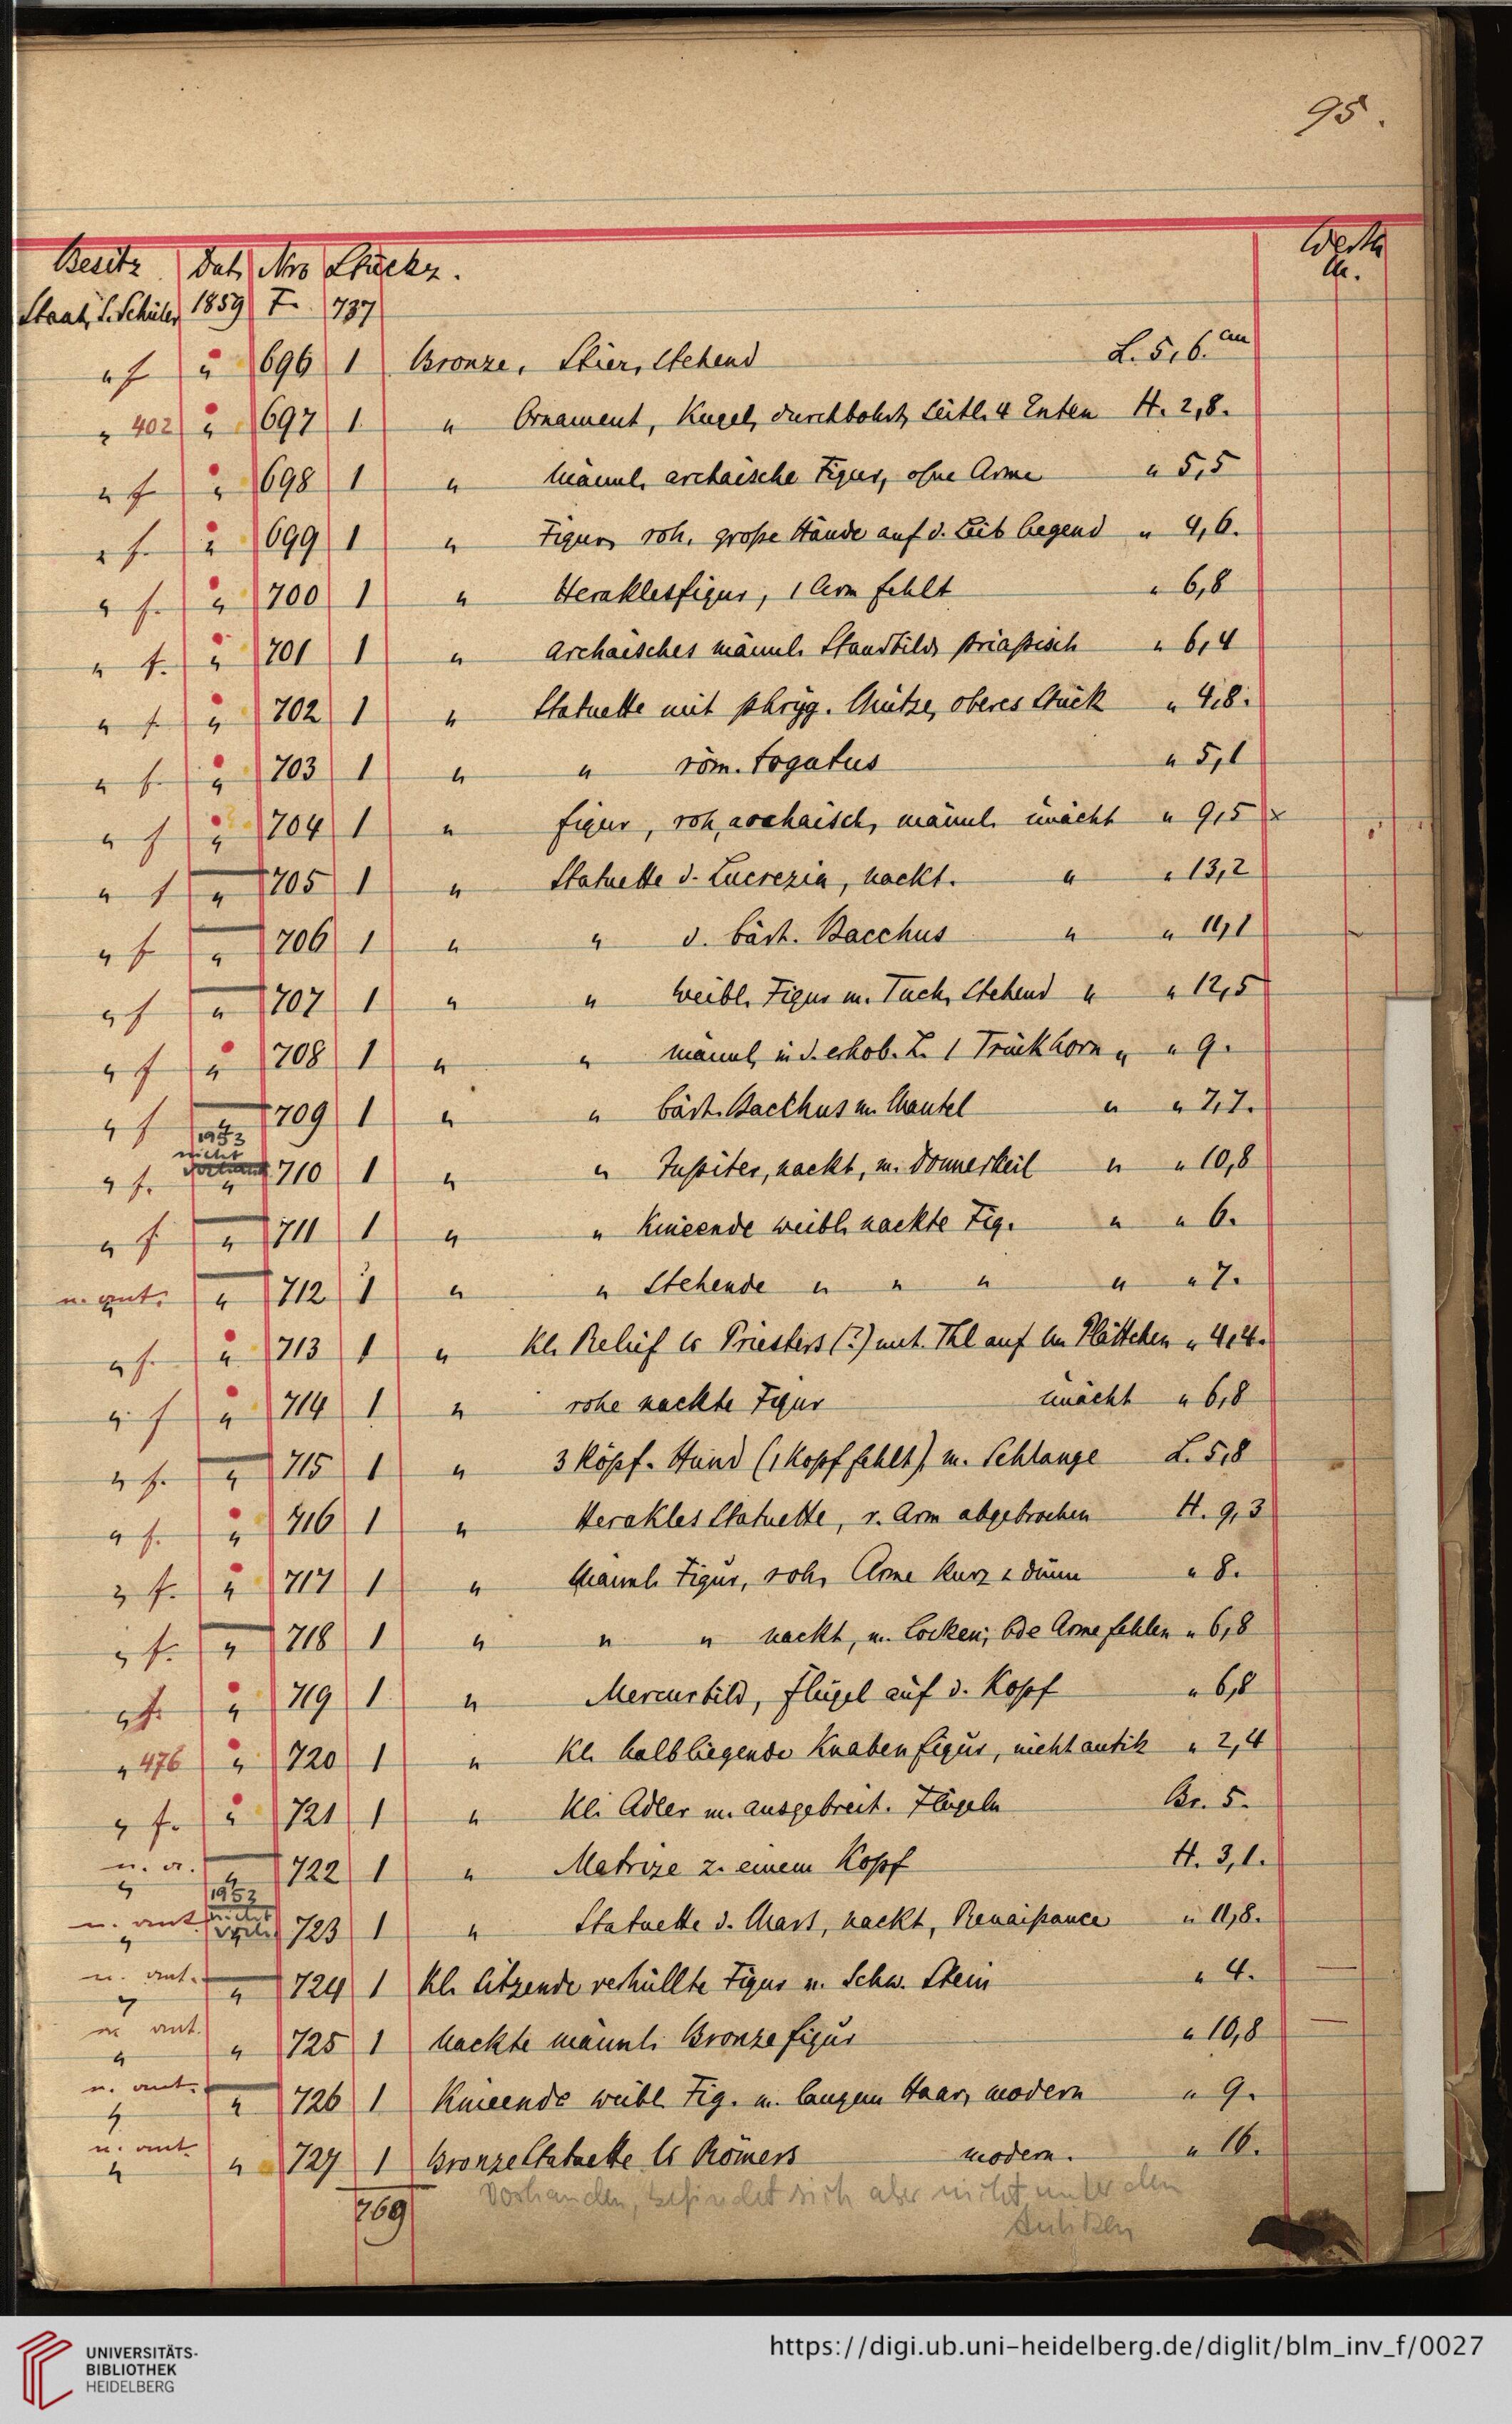 95.
Besitz Dat. Nro Stücke. Werth M.
Staat, S. Schüler 1859 F. 737
" f " 696 1 Bronze, Stier, stehend L. 5,6. cm
" 402 " 697 1 " Ornament, Kugel, durchbohrt, seitl. 4 Enten H. 2,8.
" f " 698 1 " männl. archaische Figur, ohne Arme " 5,5
" f. " 699 1 " Figur, roh, große Hände auf d. Leib legend " 4,6.
" f. " 700 1 " Heraklesfigur, 1 Arm fehlt " 6,8
" f. " 701 1 " archaisches männl. Standbild, priapisch " 6,4
" f. " 702 1 " Statuette mit phryg. Mütze, oberes Stück " 4,8.
" f. " 703 1 " " röm. Togatus " 5,1
" f " 704 1 " figur, roh, archaisch, männl. unächt " 9,5 x
" f " 705 1 " Statuette d. Lucrezia, nackt. " " 13,2
" f " 706 1 " " d. bärt. Bacchus " " 11,1
" f " 707 1 " " weibl. Figur m. Tuch, stehend " " 12,5
" f " 708 1 " " männl, in d. erhob. L. 1 Trinkhorn " " 9.
" f " 709 1 " " bärt. Bacchus m. Mantel " " 7,7.
1953 nicht
" f. " 710 1 " " Jupiter, nackt, m. Donnerkeil " " 10,8
" f " 711 1 " " Knieende weibl. nackte Fig. " " 6.
n. ant. " 712 1 " " Stehende " " " " " 7.
" f. " 713 1 " Kl. Relief es Priesters (?) unt. Thl auf em Plättchen " 4,4.
" f " 714 1 " rohe nackte Figur unächt " 6,8
" f. " 715 1 " 3 köpf. Hund (1 Kopf fehlt) m. Schlange L. 5,8
" f. " 716 1 " Herakles Statuette, r. Arm abgebrochen H. 9,3
" f. " 717 1 " Männl. Figur, roh, Arme kurz & dünn " 8.
" f. " 718 1 " " " nackt, m. Locken; bde Arme fehlen " 6,8
" f. " 719 1 " Mercurbild, Flügel auf d. Kopf " 6,8
" 476 " 720 1 " Kl. halbliegende Knabenfigur, nicht antik " 2,4
" f. " 721 1 " Kl. Adler m. ausgebreit. Flügeln Br. 5.
n. a. " " 722 1 " Matrize z. einem Kopf H. 3,1.
1953 nicht
n. ant " 723 1 " Statuette d. Mars, nackt, Renaissance " 11,8.
n. ant. " " 724 1 Kl. sitzende verhüllte Figur v. schw. Stein " 4.
n. ant. " " 725 1 Nackte männl. Bronzefigur " 10,8
n. ant. " " 726 1 Knieende weibl. Fig. m. langem Haar, modern " 9.
n. ant. " " 727 1 Bronze Statuette es Römers modern. " 16.
769 Vorhanden, befindet sich aber nicht unter den
Antiken
UNIVERSITÄTS-
BIBLIOTHEK
HEIDELBERG
https://digi.ub.uni-heidelberg.de/diglit/blm_inv_f/0027